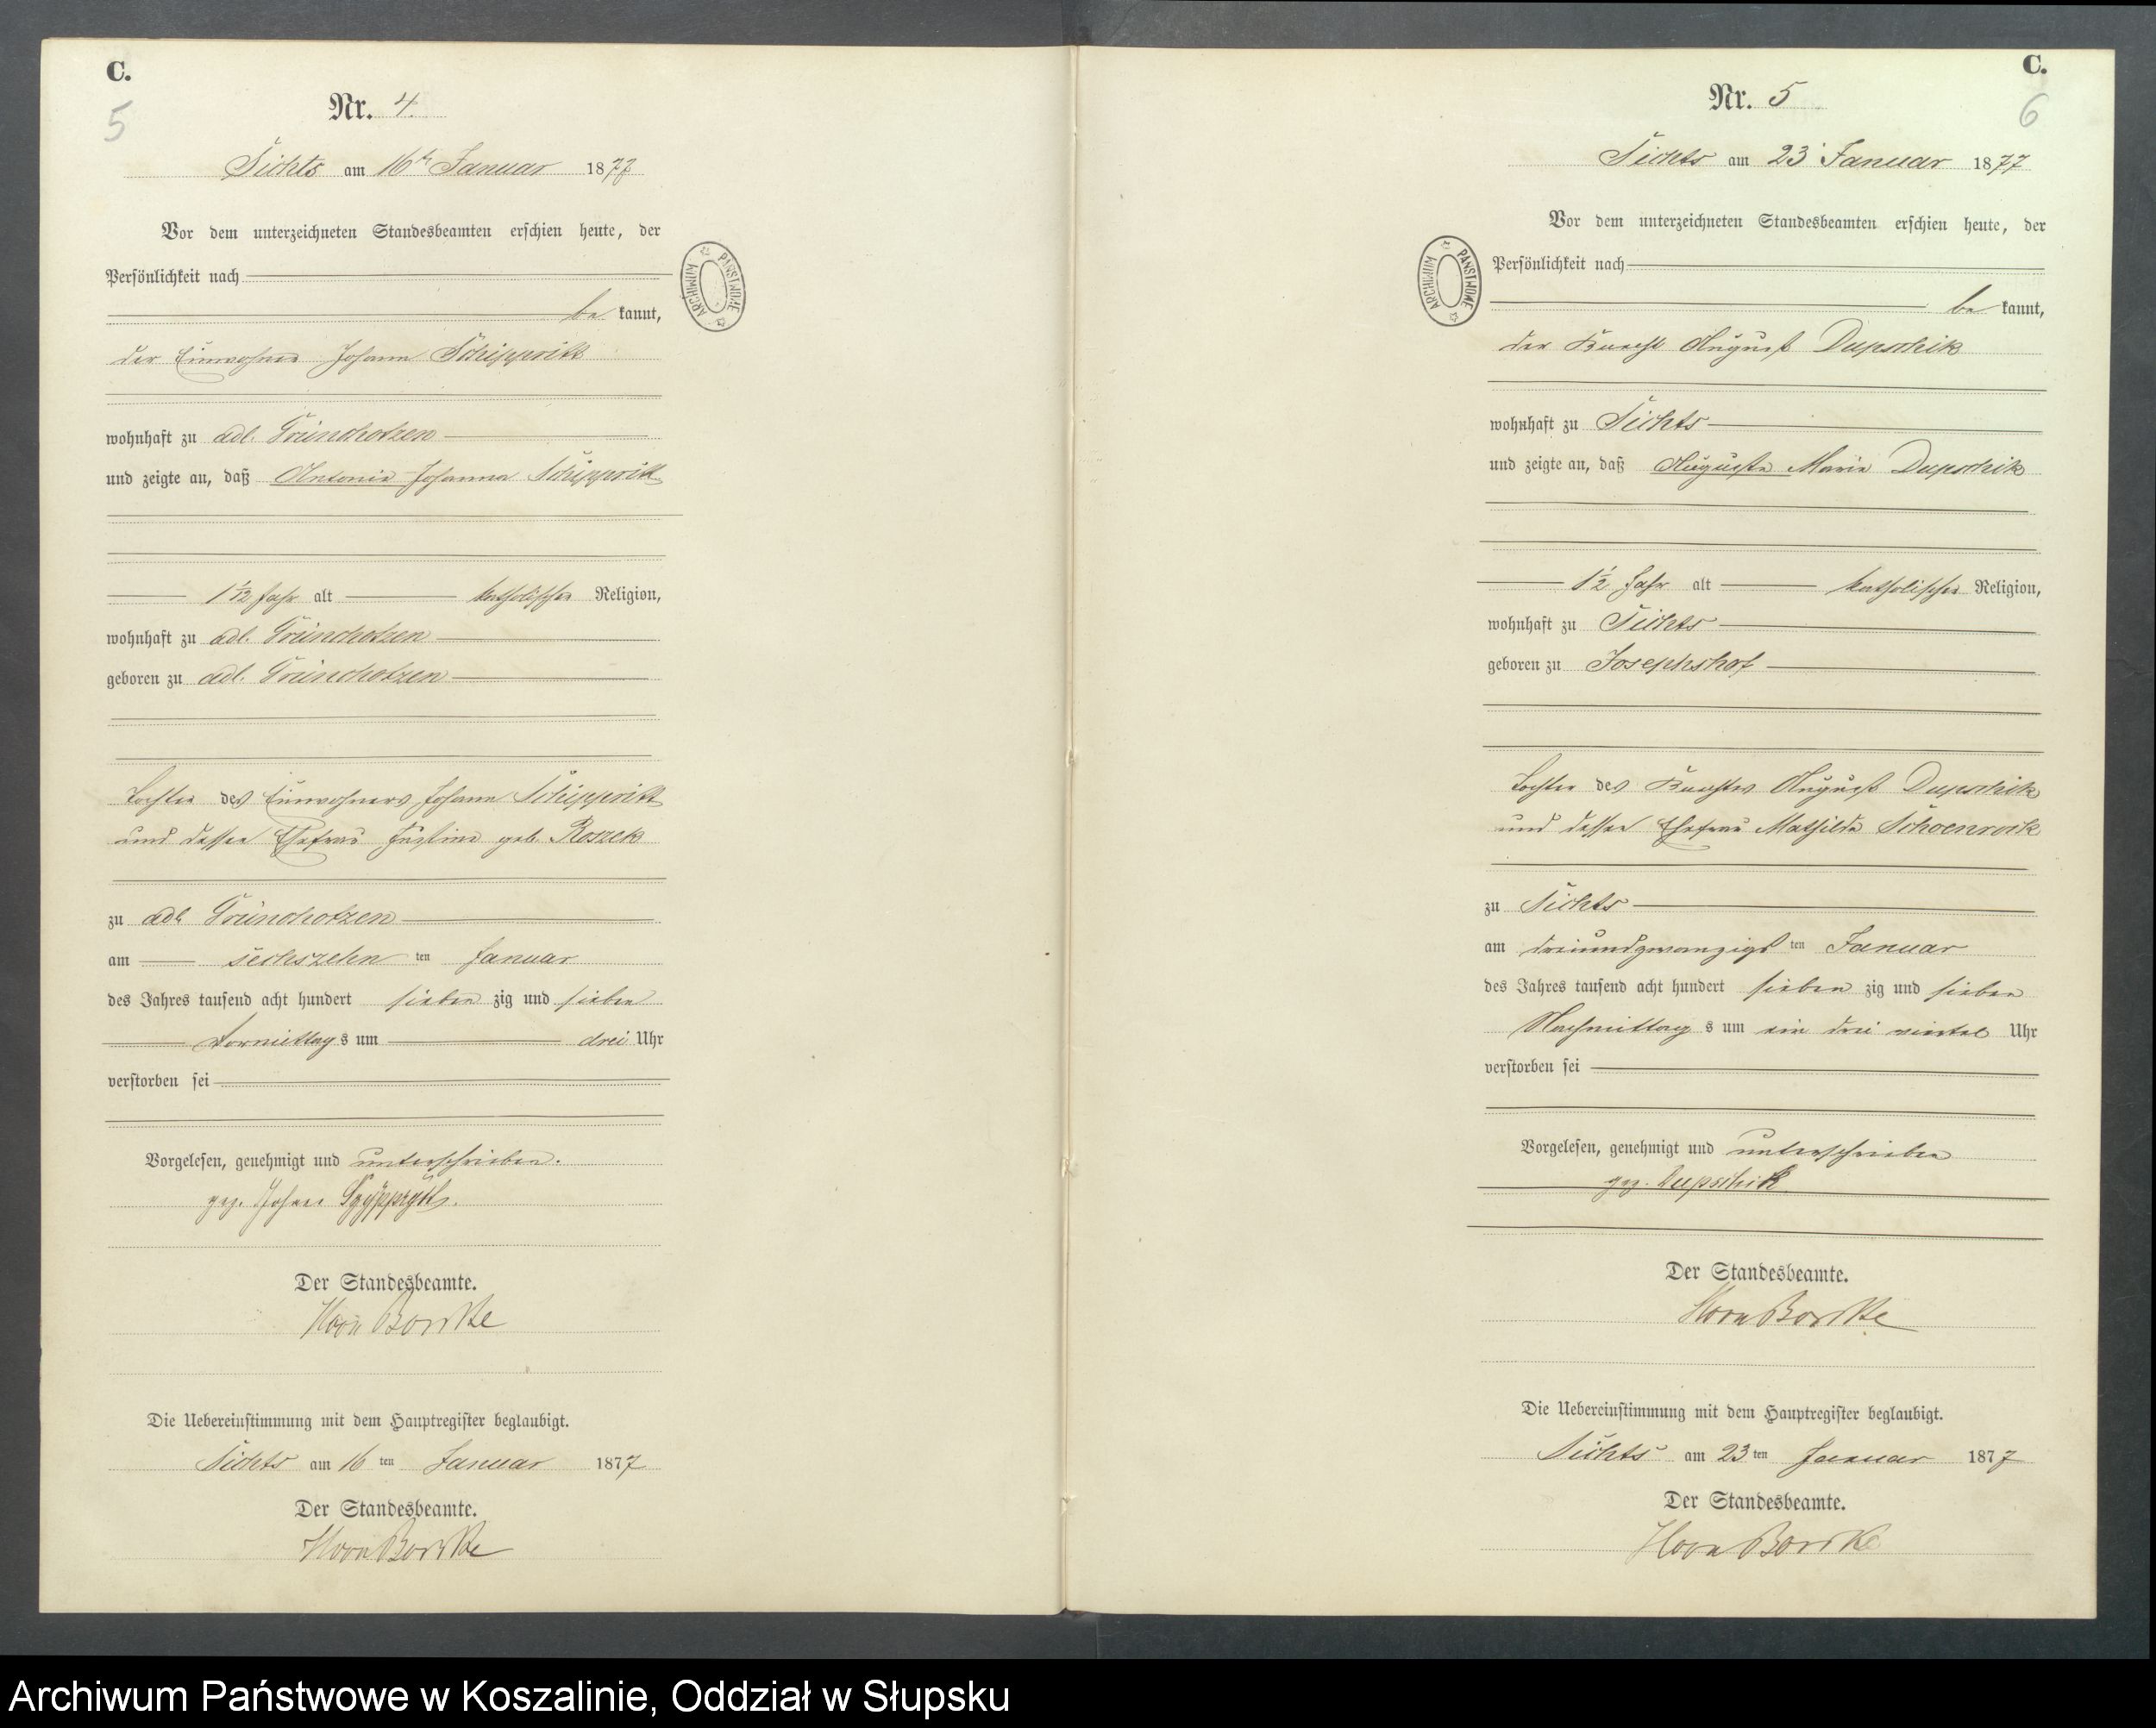 C.
5
Nr. 4.
Sichts am 16ten Januar 1877
Vor dem unterzeichneten Standesbeamten erschien heute, der
Persönlichkeit nach
be kannt,
der Einwohner Johann Schippritt
wohnhaft zu adl. Gründhotzen
und zeigte an, daß Antonie Johanna Schippritt
1 1/12 Jahr alt katholischer Religion,
wohnhaft zu adl. Gründhotzen
geboren zu adl. Gründhotzen
Tochter des Einwohners Johann Schippritt
und dessen Ehefrau Justine geb. Roszek
zu adl Gründhotzen
am sechszehn ten Januar
des Jahres tausend acht hundert sieben zig und sieben
Vormittag s um drei Uhr
verstorben sei
Vorgelesen, genehmigt und unterschrieben.
gez. Johann
Der Standesbeamte.
Die Uebereinstimmung mit dem Hauptregister beglaubigt.
Sichts am 16 ten Januar 1877
Der Standesbeamte.
ARCHIWUM PAŃSTWOWE
C.
6
Nr. 5
Sichts am 23 Januar 1877
Vor dem unterzeichneten Standesbeamten erschien heute, der
Persönlichkeit nach
be kannt,
der Knecht August Dupschik
wohnhaft zu Sichts
und zeigte an, daß Auguste Marie Dupschik
1 1/2 Jahr alt katholischer Religion,
wohnhaft zu Sichts
geboren zu Josephshof
Tochter des Knechtes August Dupschik
und dessen Ehefrau Mathilde Schoenrock
zu Sichts
am dreiundzwanzigst ten Januar
des Jahres tausend acht hundert sieben zig und sieben
Nachmittag s um ein drei viertel Uhr
verstorben sei
Vorgelesen, genehmigt und unterschrieben
gez. Dupschik
Der Standesbeamte.
Die Uebereinstimmung mit dem Hauptregister beglaubigt.
Sichts am 23 ten Januar 1877
Der Standesbeamte.
ARCHIWUM PAŃSTWOWE
Archiwum Państwowe w Koszalinie, Oddział w Słupsku